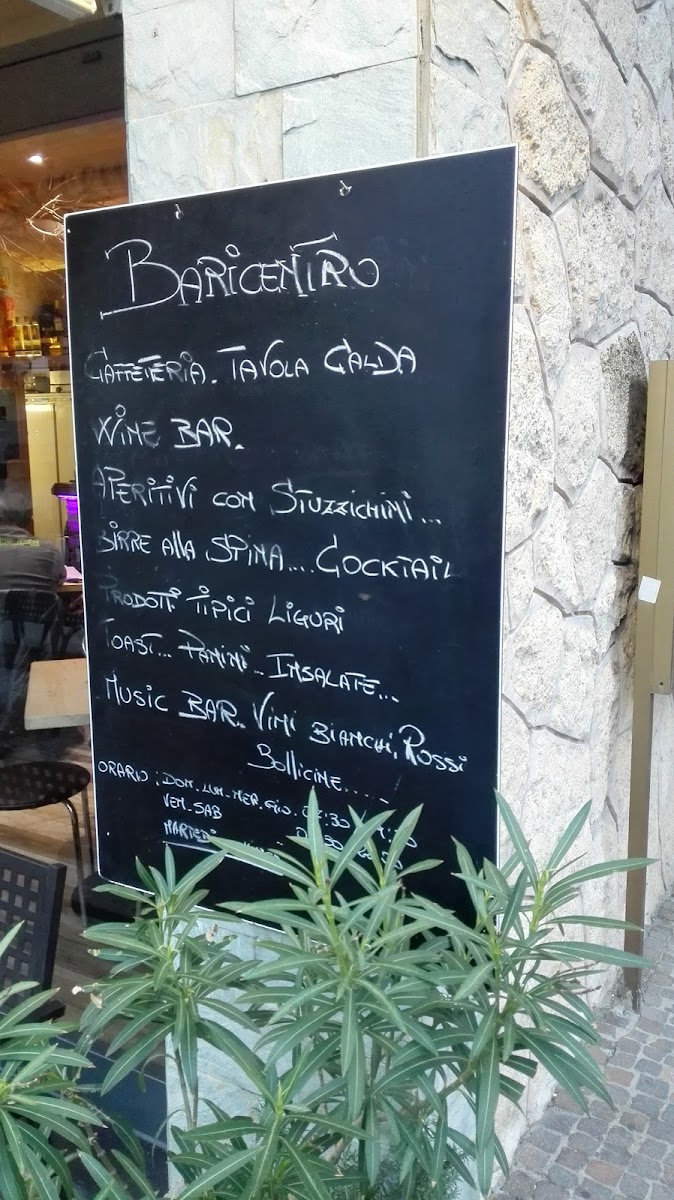 BARICENTRO
CAFFETTERIA. TAVOLA CALDA
WINE BAR.
APERITIVI CON STUZZICHINI...
BIRRE ALLA SPINA.... COCKTAIL
PRODOTTI TIPICI LIGURI
TOAST... PANINI... INSALATE...
MUSIC BAR.. VINI BIANCHI, ROSSI
BOLLICINE.....
ORARIO: DOM. LUN. MER. GIO.
VEN. SAB
MARTEDI